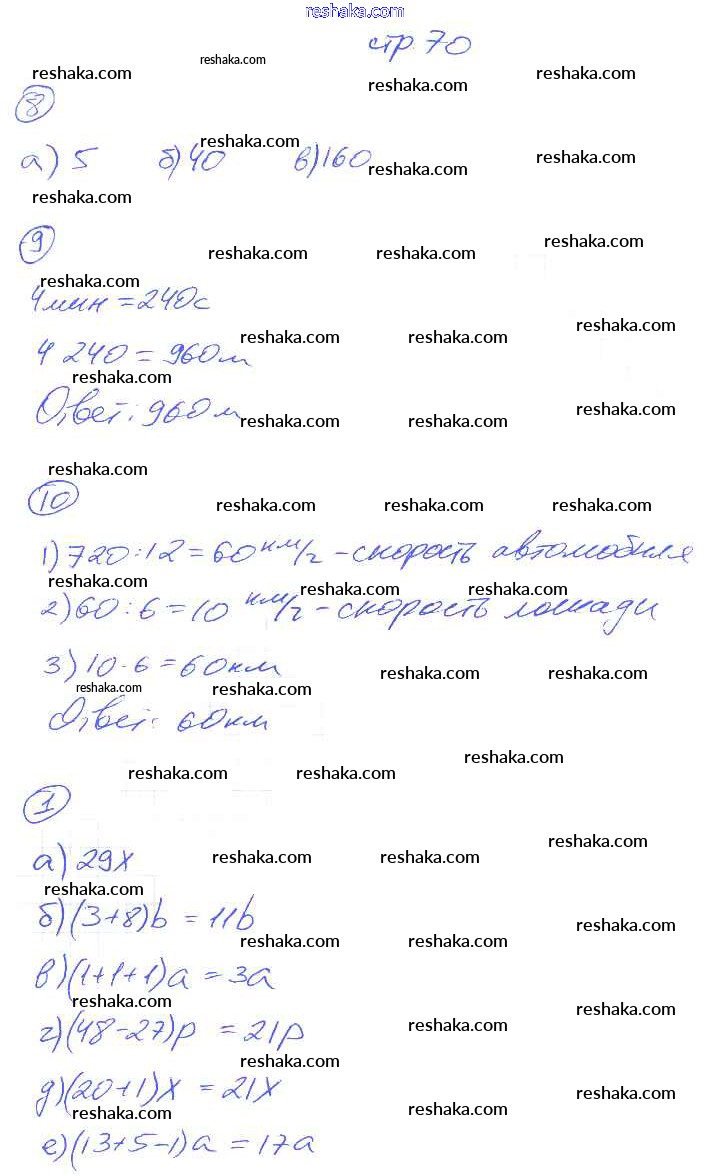 reshaka.com
стр. 70
reshaka.com reshaka.com reshaka.com reshaka.com
8
reshaka.com
а) 5 б) 40 в) 160
reshaka.com reshaka.com reshaka.com
9
reshaka.com reshaka.com reshaka.com
reshaka.com
4 мин = 240 с
reshaka.com reshaka.com reshaka.com
4 240 = 960 м
reshaka.com
Ответ: 960 м
reshaka.com reshaka.com reshaka.com
reshaka.com
10
reshaka.com reshaka.com reshaka.com
1) 720 : 12 = 60 км/ч - скорость автомобиля
reshaka.com reshaka.com reshaka.com
2) 60 : 6 = 10 км/ч - скорость лошади
3) 10 · 6 = 60 км
reshaka.com reshaka.com
reshaka.com reshaka.com reshaka.com
Ответ: 60 км
reshaka.com
reshaka.com reshaka.com
1
reshaka.com
а) 29x
reshaka.com reshaka.com
reshaka.com
б) (3+8)b = 11b
reshaka.com
reshaka.com reshaka.com
в) (1+1+1)a = 3a
reshaka.com
г) (48-27)p = 21p
reshaka.com reshaka.com
reshaka.com
д) (20+1)x = 21x
reshaka.com
reshaka.com reshaka.com
е) (13+5-1)a = 17a